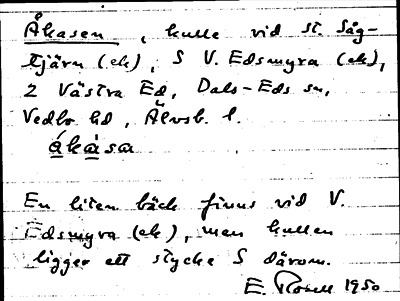 Åkasen, kulle vid st. Såg-
tjärn (ek), S V. Edsmyra (ek),
2 Västra Ed, Dals-Eds sn,
Vedbo hd, Älvsb. l.
åkàsa
En liten bäck finns vid V.
Edsmyra (ek), men kullen
ligger ett stycke S därom.
E. Rosell 1950